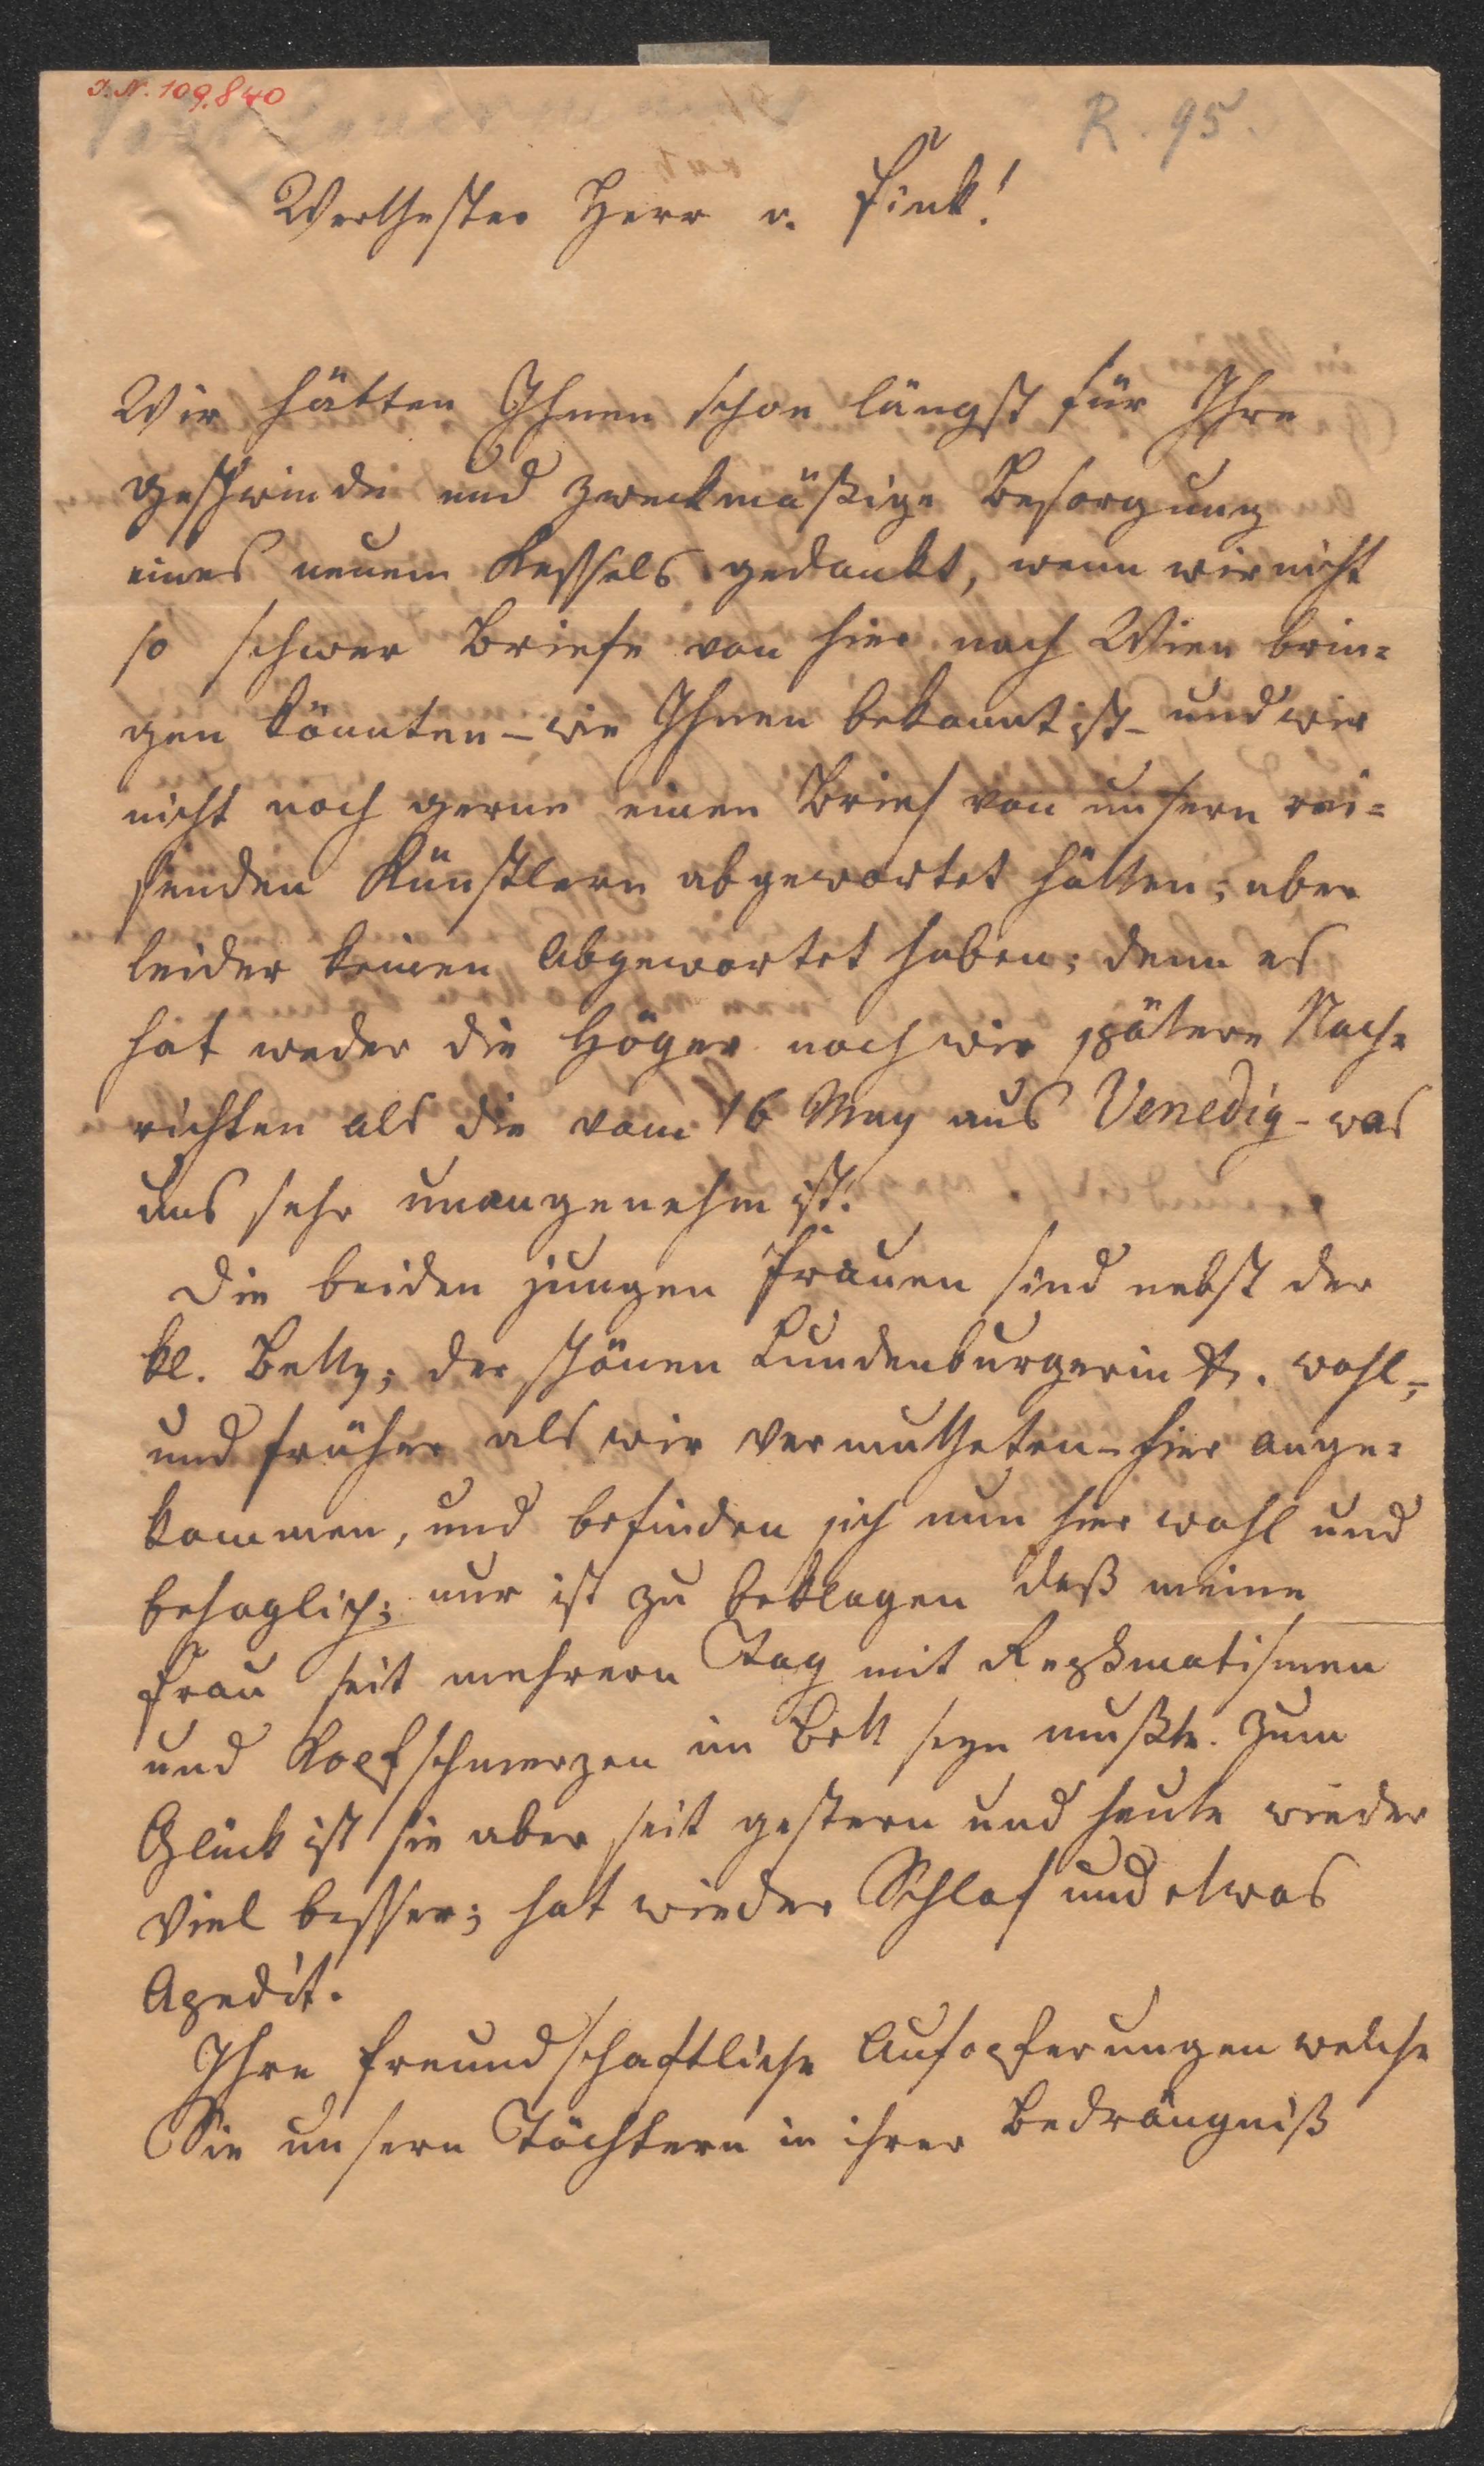 I. N. 109.840
R. 95.
Werthester Herr v. Fink!
Wir hätten Ihnen schon längst für Ihre
geschwinde und zweckmäßige Besorgung
eines neuem Kessels gedankt, wenn wir nicht
so schwer Briefe von hier nach Wien brin=
gen könnten – wie Ihnen bekannt ist – und wir
nicht noch gerne einen Brief von unsern rei=
senden Künstlern abgewartet hätten; aber
leider keinen Abgewartet haben; denn es
hat weder die Höger noch wir spätere Nach=
richten als die vom 16 May aus Venedig – was
uns sehr unangenehm ist.
Die beiden jungen Frauen sind nebst der
kl. Betty; der schönen Lundenburgerin &. wohl –
und früher als wir vermutheten – hier ange=
kommen, und befinden sich nun hier wohl und
behaglich; nur ist zu beklagen daß meine
Frau seit mehrern Tag mit
und Kopfschmerzen im Bett seyn mußte. Zum
Glück ist sie aber seit gestern und heute wieder
viel besser; hat wieder Schlaf und etwas
Apedit.
Ihre freundschaftliche Aufopferungen welche
Sie unsern Töchtern in ihrer Bedrängniß